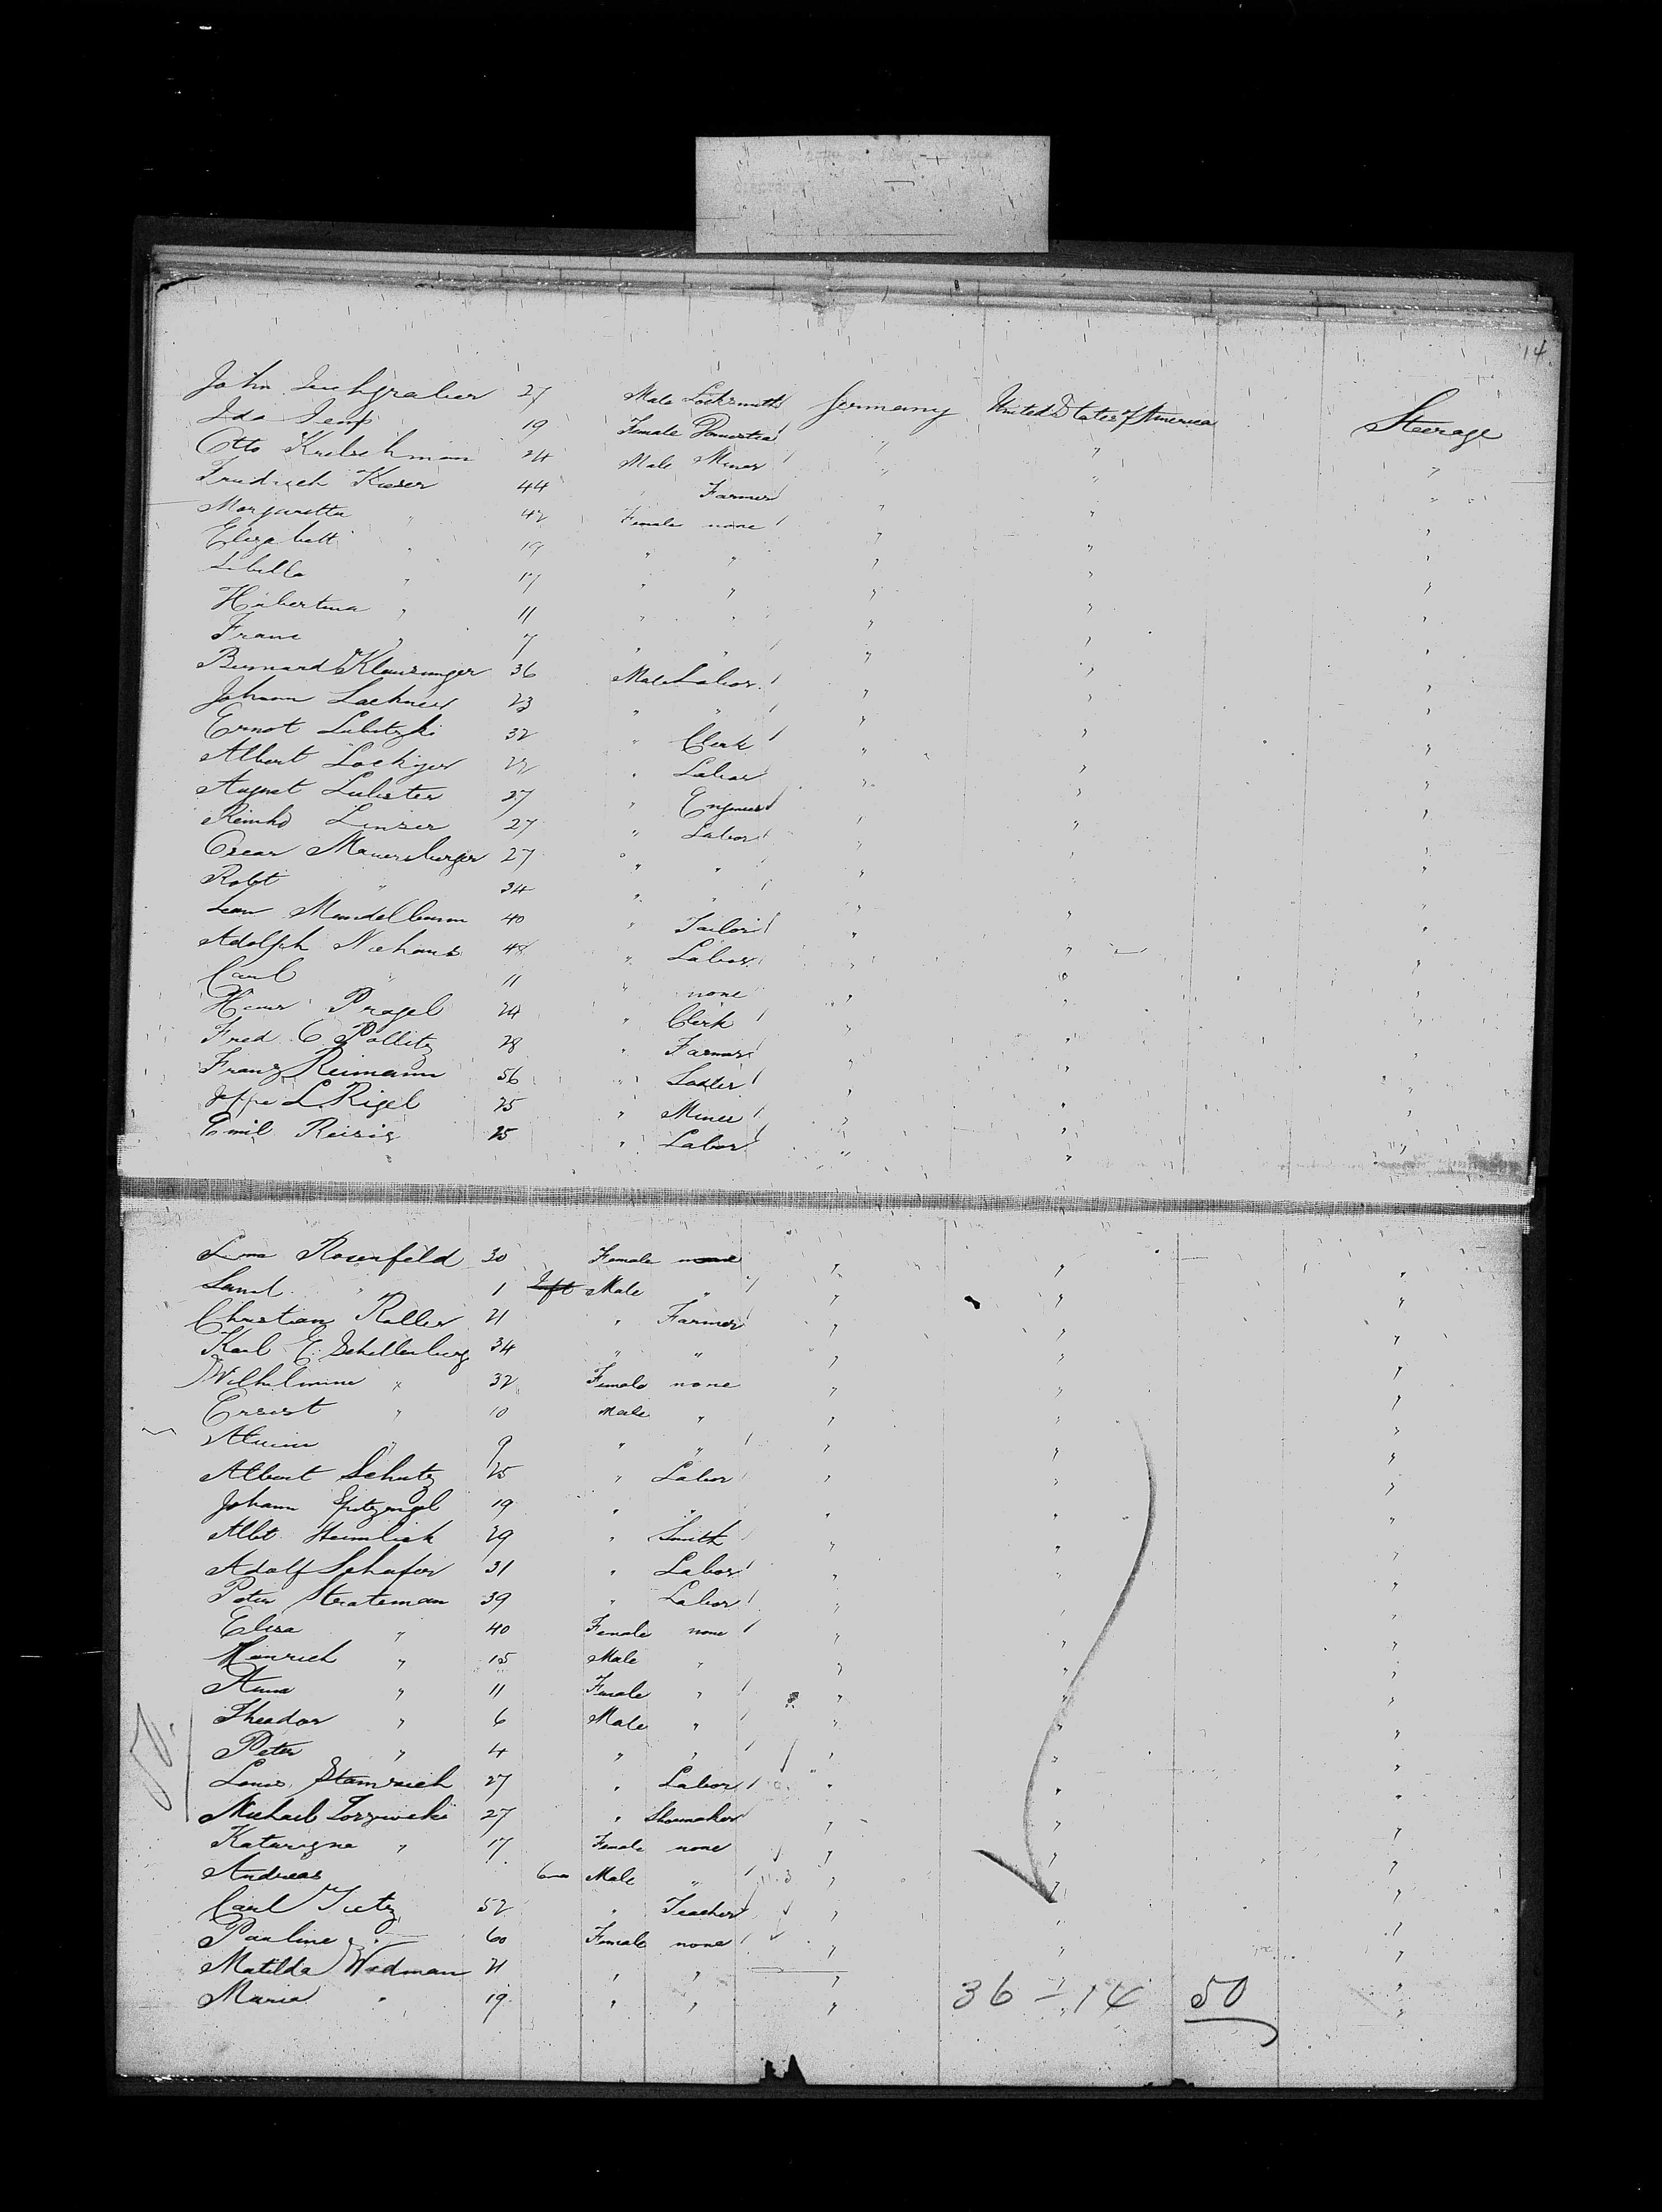 14
John 27 Male Locksmith Germany United States of America Steerage
Ida 19 Female Domestic " " "
Otto Kretschman 24 Male Miner " " "
Friedrich Kieser 44 " Farmer " " "
Margaretta " 42 Female none " " "
Elizabeth " 19 " " " " "
Sibilla " 17 " " " " "
Hubertina " 11 " " " " "
Franc " 7 " " " " "
Bernard Klausunger 36 Male Labor " " "
Johann Lachner 23 " " " " "
Ernst 32 " Clerk " " "
Albert 22 " Labor " " "
August 27 " Engineer " " "
Reinhd Linser 27 " Labor " " "
Oscar Mauersberger 27 " " " " "
Robt " 34 " " " " "
Leon Mandelbaum 40 " Tailor " " "
Adolph Niehaus 48 " Labor " " "
Carl " 11 " none " " "
Pragel 24 " Clerk " " "
Fred C. Pollitz 28 " Farmer " " "
Franz Reimann 56 " Sadler " " "
L. Rigel 25 " Miner " " "
Emil Reisig 25 " Labor " " "
Rosenfeld 30 Female none " " "
Saml " 1 Male " " " "
Christian Roller 21 " Farmer " " "
Karl E. Schellenberg 34 " " " " "
Wilhelmine " 32 Female none " " "
Ernst " 10 Male " " " "
" 9 " " " " "
Albert Schutz 25 " Labor " " "
Johann 19 " " " " "
Albt. Heimlich 29 " Smith " " "
Adolf Schafer 31 " Labor " " "
Peter Strateman 39 " Labor " " "
Elisa " 40 Female none " " "
Heinrich " 15 Male " " " "
Anna " 11 Female " " " "
Theodor " 6 Male " " " "
Peter " 4 " " " " "
Louis 27 " Labor " " "
Michael 27 " Shoemaker " " "
Katarzyna " 17 Female none " " "
Andreas 6m Male " " " "
Carl Tietz 52 " Teacher " " "
Pauline " 60 Female none " " "
Matilda Wedman 21 " " " " "
Maria " 19 " " " " "
36 - 14 50
50.